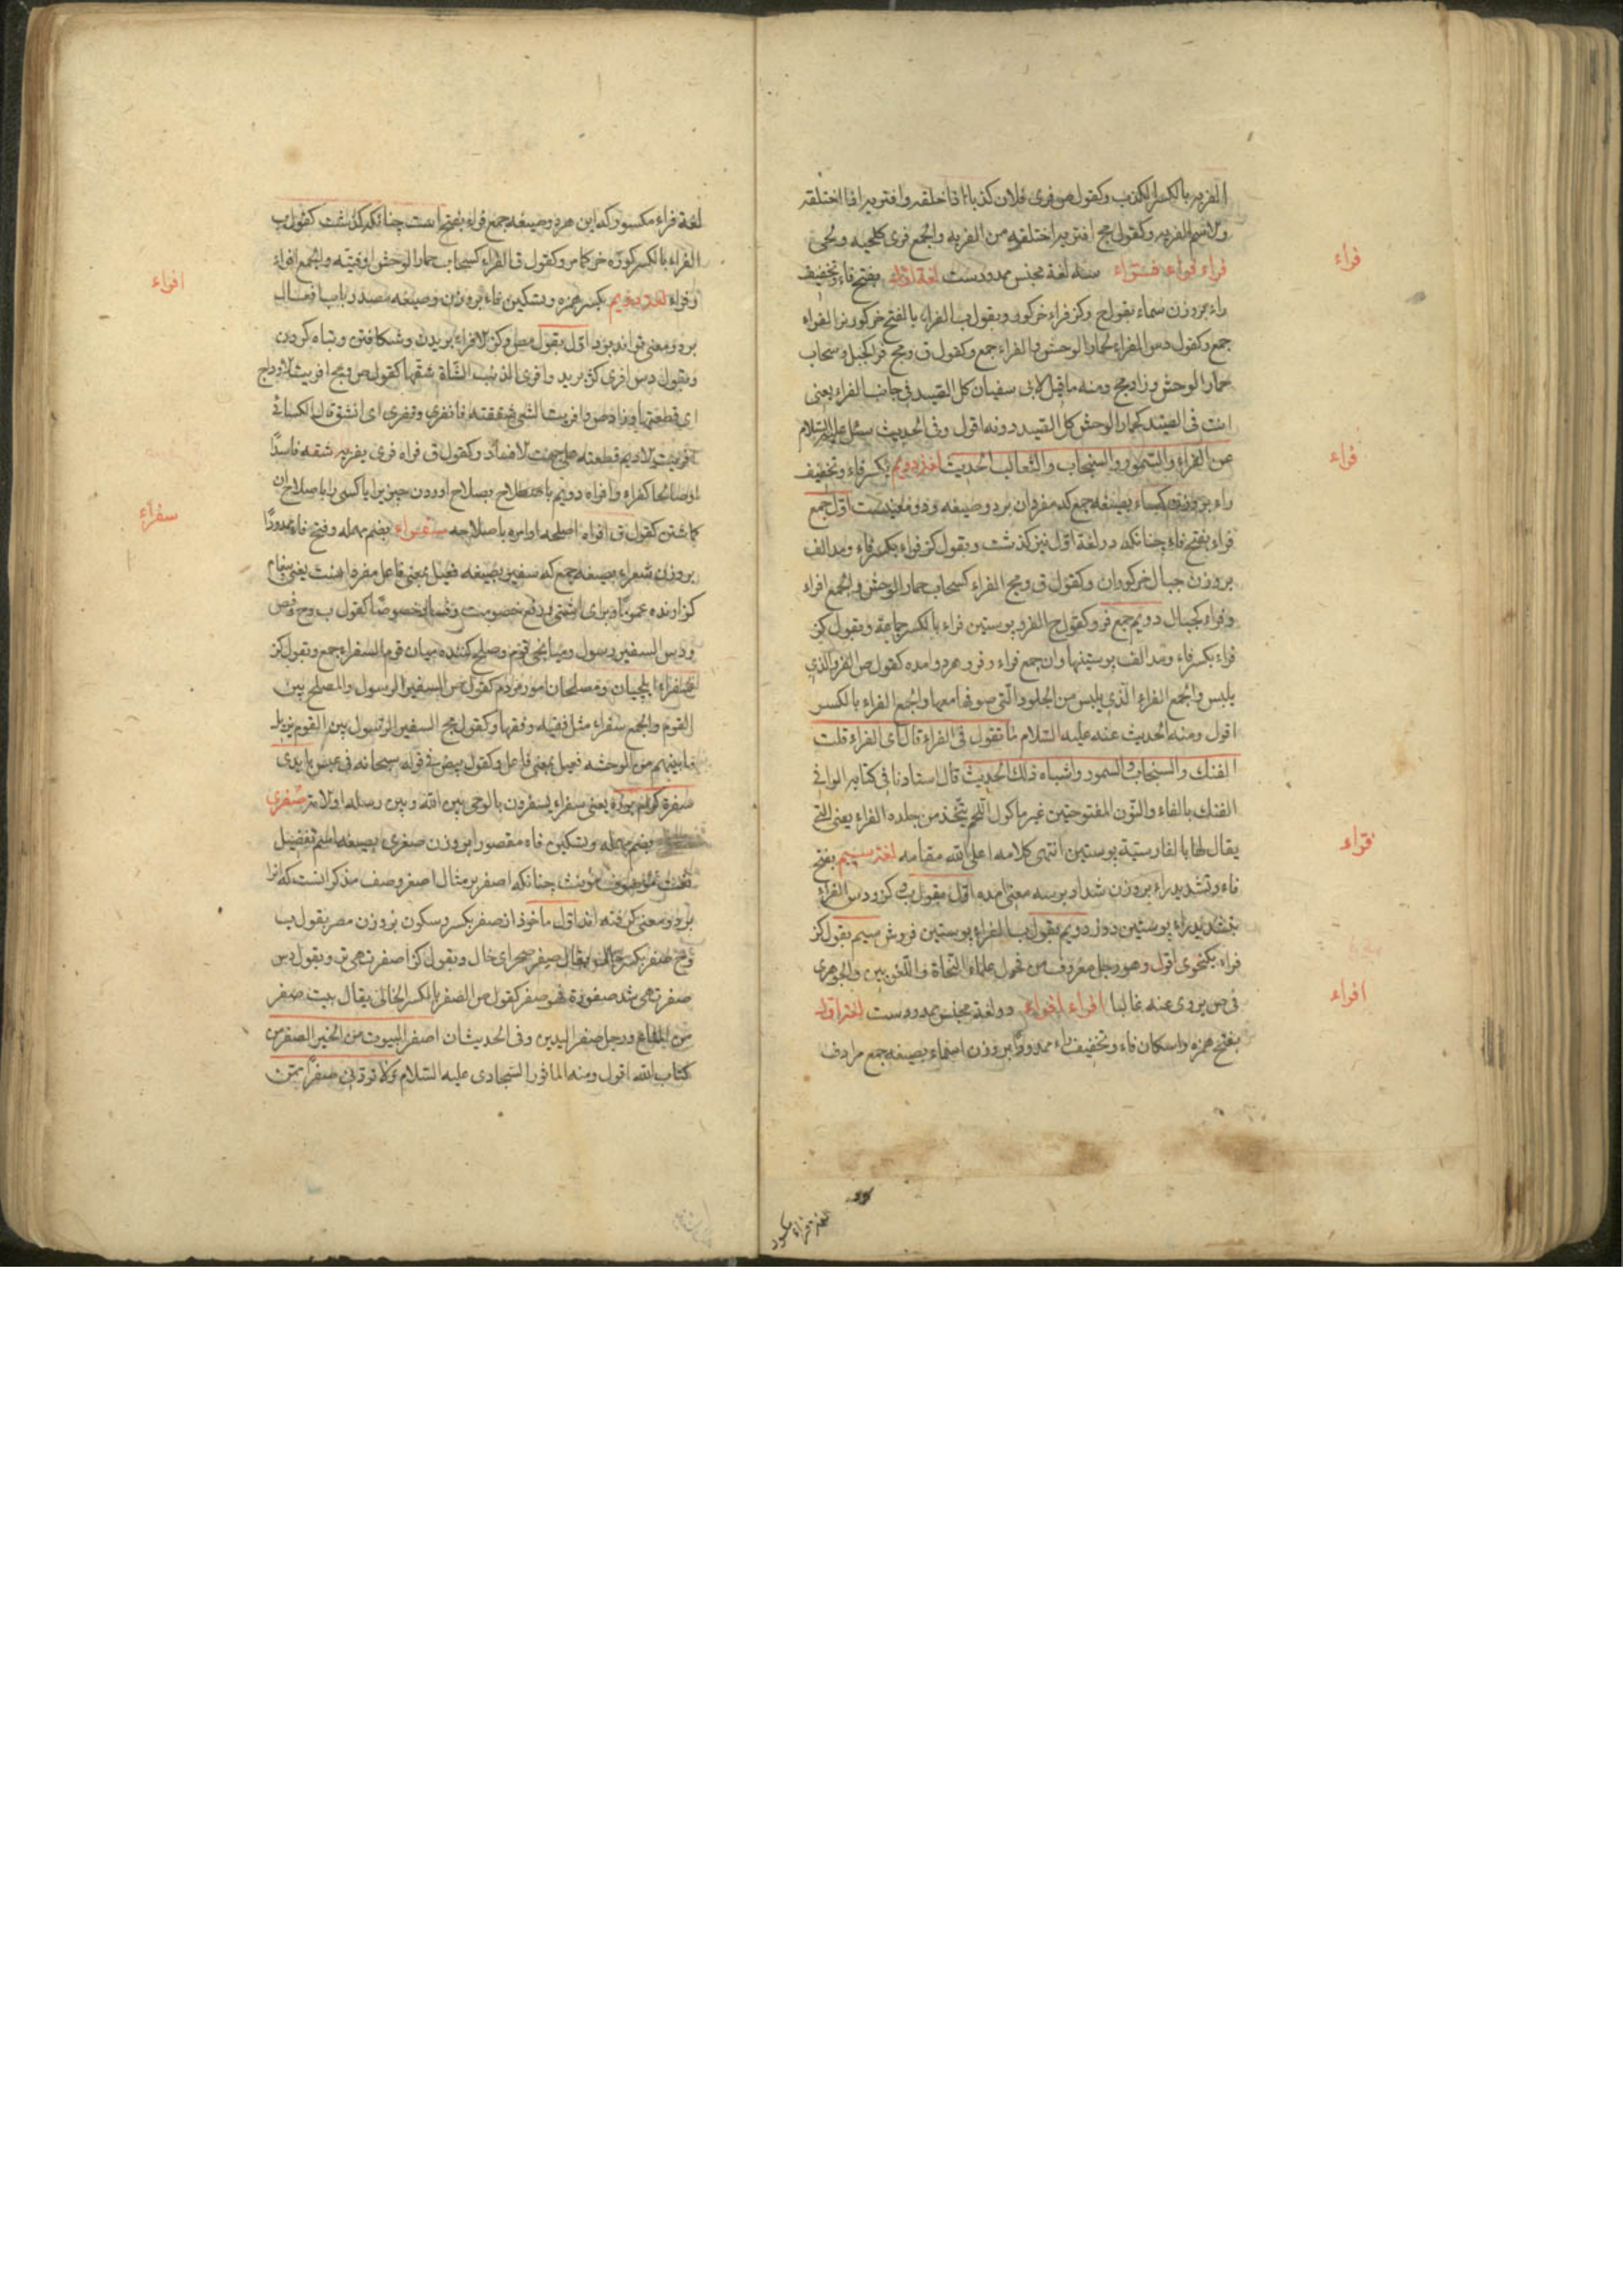 الفریه بالکسر الکذب وکقول ص فری فلان کذبا اذا خلقه وافتریه اذا اختلقه
والاسم الفریه وکقول مج افتریه اختلقه من الفریه والجمع فری کلحیه ولحی
فراء فراء فرّاء سه لغة مجنس ممدودست لغة اوّل بفتح فاء وتخفیف
راء بروزن سماء بقول ح وکز فراء خرکور وبقول ب الفراء بالفتح خرکور نر الفراء
جمع وکقول دس الفراء الحمار الوحش والفراء جمع وکقول ق ومج فرا کجبل وسحاب
حمار الوحش وزاد مج ومنه ما قیل لابی سفیان کل الصید فی جانب الفراء یعنی
انت فی الصید کحمار الوحش کل الصید دونه اقول وفی الحدیث سئل علیه السلام
عن الفراء والسمور والسنجاب والثعالب الحدیث لغة دویم بکسر فاء وتخفیف
راء بروزن کساء بصیغه جمع که مفرد ان بر دو صیغه ودو معنیست اوّل جمع
فراء بفتح فاء چنانکه در لغة اوّل نیز کذشت وبقول کز فراء بکسر فاء ومد الف
بروزن جبال خرکوران وکقول ق ومج الفراء کسحاب حمار الوحش والجمع افراء
وفراء کجبال دویم جمع فرو کقول ح الفرو پوستین فراء بالکسر جماعة وبقول کز
فراء بکسر فاء ومد الف پوستینها وان جمع فراء وفرو هر دو امده کقول ص الفرو الذی
یلبس والجمع الفراء الذی یلبس من الجلود التی صوفها معها والجمع الفراء بالکسر
اقول ومنه الحدیث عنه علیه السّلام ما تقول فی الفراء قال ای الفراء قلت
الفنک والسنجاب والسمور واشباه ذلک الحدیث قال استادنا فی کتابه الوافی
الفنک بالفاء والنون المفتوحتین غیر ماکول اللحم یتّخذ من جلده الفراء یعنی التی
یقال لها بالفارسیة پوستین انتهی کلامه اعلی الله مقامه لغة سیم بفتح
فاء وتشدید راء بروزن شداد بر سه معنی امده اوّل بقول ب وح وکز ودس الفراء
بتشدید راء پوستین دوز دویم بقول ب الفراء پوستین فروش سیم بقول کز
فراء یک نحوی اقول وهو رجل معروف من فحول علماء النحاة واللغویین والجوهری
فی ص یروی عنه غالبا افراء افراء دو لغة مجنس ممدودست لغة اوّل
بفتح همزه واسکان فاء وتخفیف راء ممدودًا بروزن اسماء بصیغه جمع مرادف
فراء
فراء
فرّاء
افراء
لغة فراء مکسور
لغة فراء مکسور که این هر دو صیغه جمع فراء بفتح است چنانکه کذشت کقول ب
الفراء بالکسر کوره خر کما مر وکقول ق الفراء کسحاب حمار الوحش او فتیّه والجمع افراء
وفراء لغة دویم بکسر همزه وتسکین فاء بروزن وصیغه مصدر باب افعال
بر دو معنی اند بود اوّل بقول مص وکز الافراء بریدن وشکافتن وتباه کردن
وبقول دس افری کژ برید وافری الذئب الشاة شقها کقول ص ومج افریت الاوداج
ای قطعتها وزاد ص وافریت الشئ شققته فانفری وتفری ای انشق قال الکسائی
افریت الادیم قطعته علی جهت الافساد وکقول ق فراه فری یفریه شقه فاسدًا
او صالحا کفراه وافراه دویم باصطلاح بصلاح اوردن چیزیرا یا کسی را باصلاح ان
کماشتن کقول ق افراه اصلحه او امره باصلاحه سفراء بضم مهمله وفتح فاء ممدودًا
بروزن شعراء بصیغه جمع که سفیر بصیغه فعیل بمعنی فاعل مفرد انست یعنی پیغام
کزارنده عمومًا وبرای اشتی ورفع خصومت وفساد خصوصًا کقول ب وح وص
ودس السفیر رسول ومیانجی قوم وصلح کننده میان قوم السفراء جمع وبقول کز
سفراء ایلچیان ومصلحان امور مردم کقول ص السفیر الرسول والمصلح بین
القوم والجمع سفراء مثل فقیه وفقهاء وکقول مج السفیر الرسول بین القوم یزیل
ما بینهم من الوحشه فعیل بمعنی فاعل وکقول بیض فی قوله سبحانه فی عبس بایدی
سفرة کرام برره یعنی سفراء یسفرون بالوحی بین الله وبین رسله او الامة صفری
بضم مهمله وتسکین فاء مقصورا بروزن صغری بصیغه اسم تفضیل
مؤنث چنانکه اصفر بر مثال اصغر وصف مذکر انست که انرا
بر دو معنی کرفته اند اوّل ماخوذ از صفر بکسر وسکون بروزن مصر بقول ب
وح صفر بکسر خالی یقال صفر صحرای خال وبقول کز اصفر تهی تر وبقول دس
صفر تهی شد صفورة فهو صفر کقول ص الصفر بالکسر الخالی یقال بیت صفر
من المتاع ورجل صفر الیدین وفی الحدیث ان اصفر البیوت من الخیر الصفر من
کتاب الله اقول ومنه الماثور السجادی علیه السّلام ولا تردّنی صفرًا ممّن
افراء
سفراء